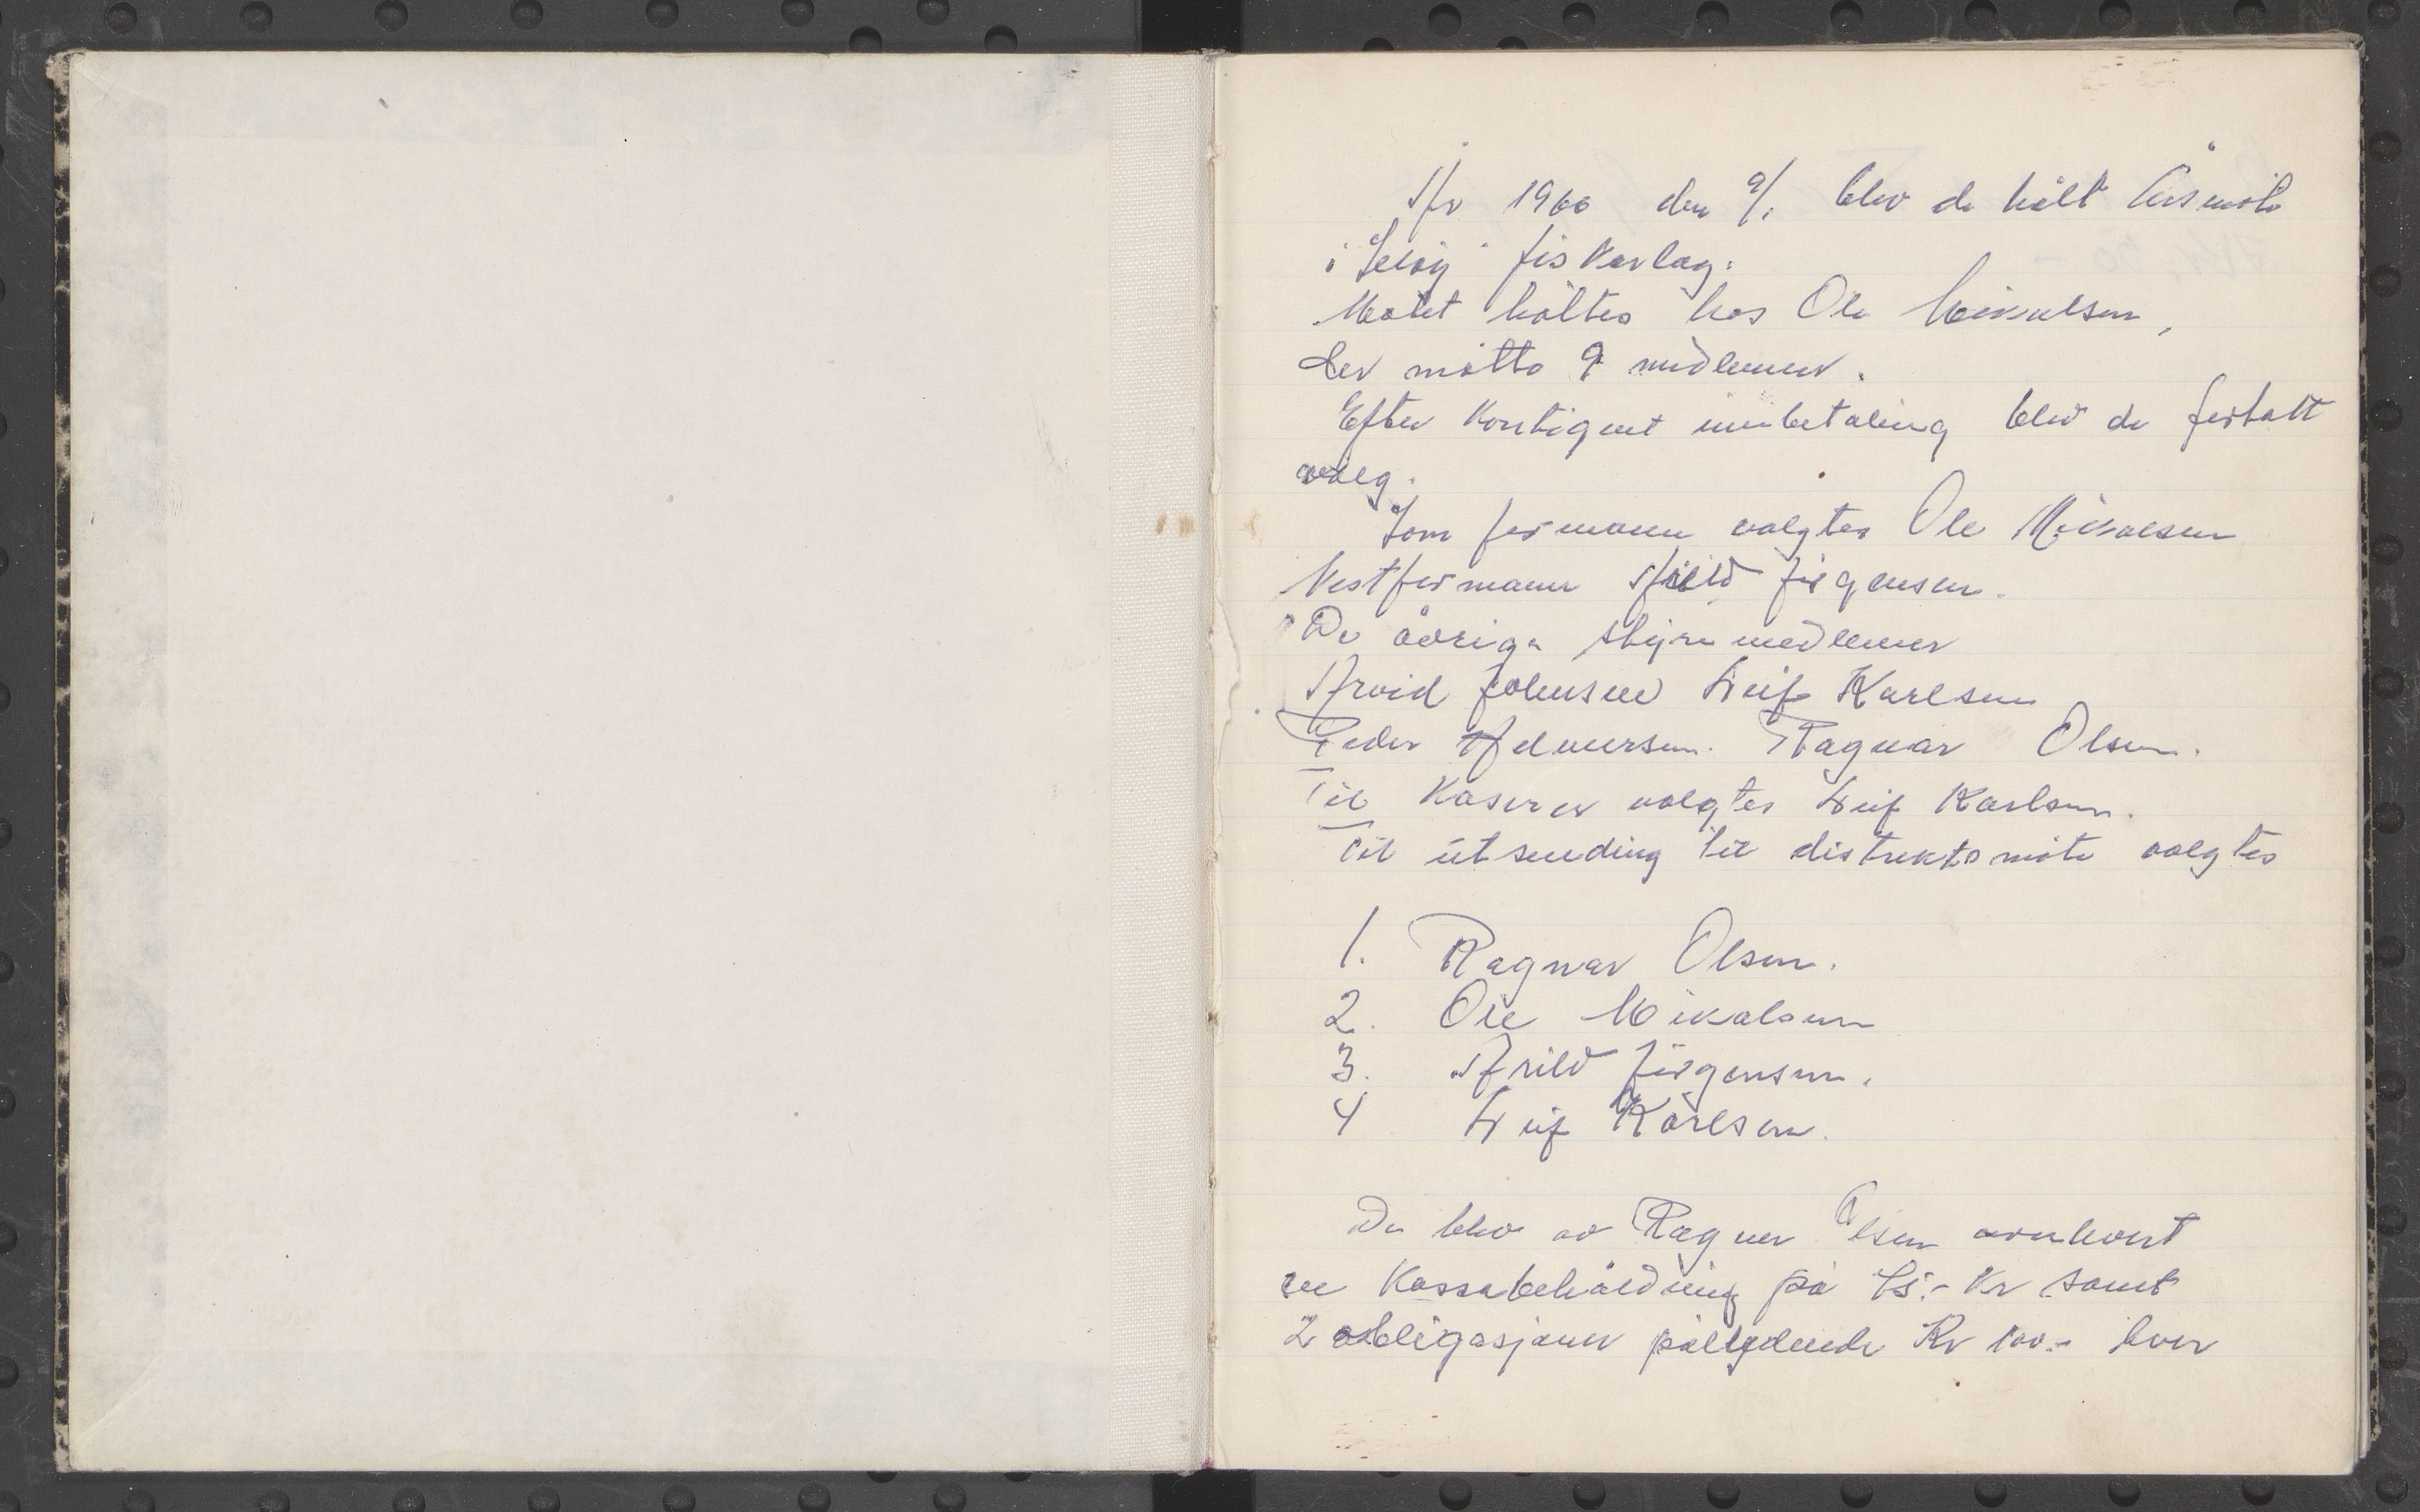 År 1960 den 9/1 blev de hålt Årsmöte
i Seløy fiskarlag.
Mötet håltes hos Ole Mikalsen,
der møtte 9 medlemer.
Efter Kontigent innbetaling blev de fortatt
valg.
Som formann valgtes Ole Mikalsen
Nestformann Arild Jørgensen.
De øvrige styremedlemer
Arvid Johnsen Leif Karlsen
Peder Helmersen. Ragnar Olsen.
Til Kaserer valgtes Leif Karlsen.
Til utsending til distriktsmöte valgtes
1. Ragnar Olsen.
2. Ole Mikalsen
3. Arild Jörgensen.
4 Leif Karlsen.
De blev av Ragner Olsen
en Kassabehåldning på Kr samt
2 obligasjoner pålydende Kr 100.- hver